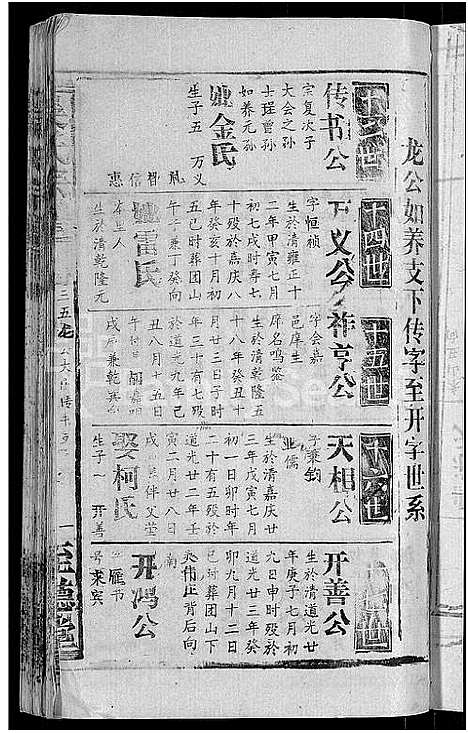 龙公如养支下传字至开字世系
传书公
宗复次子
大会之孙
士珵曾孙
如养元孙
金氏
生子五 万义
智
信
惠
十四世
万义公
字恒祯
生於清雍正十
二年甲寅七月
初七戌时寿七
十殁於嘉庆八
年癸亥十月初
五巳时葬团山
午子兼丁癸向
雷氏
本里人
生於清乾隆元
十五世
祚亨公
字会嘉
邑庠生
席名鸣鉴
生於清乾隆五
十八年癸丑十
月廿三日子时
年三十有七殁
於道光九年己
丑八月十五日
戌辰兼乾巽向
天相公
字兼钧
业儒
生於清嘉庆廿
三年戊寅七月
初一日卯时年
二十有五殁於
道光廿二年壬
寅二月廿八日
戌 伴父茔
娶柯氏
生子一 开善
开善公
生於清道光廿
年庚子七月初
九日申时殁於
道光廿三年癸
卯九月十二日
巳时葬团山下
背后向
南
开鸿公
雁书
号来宾
至德堂